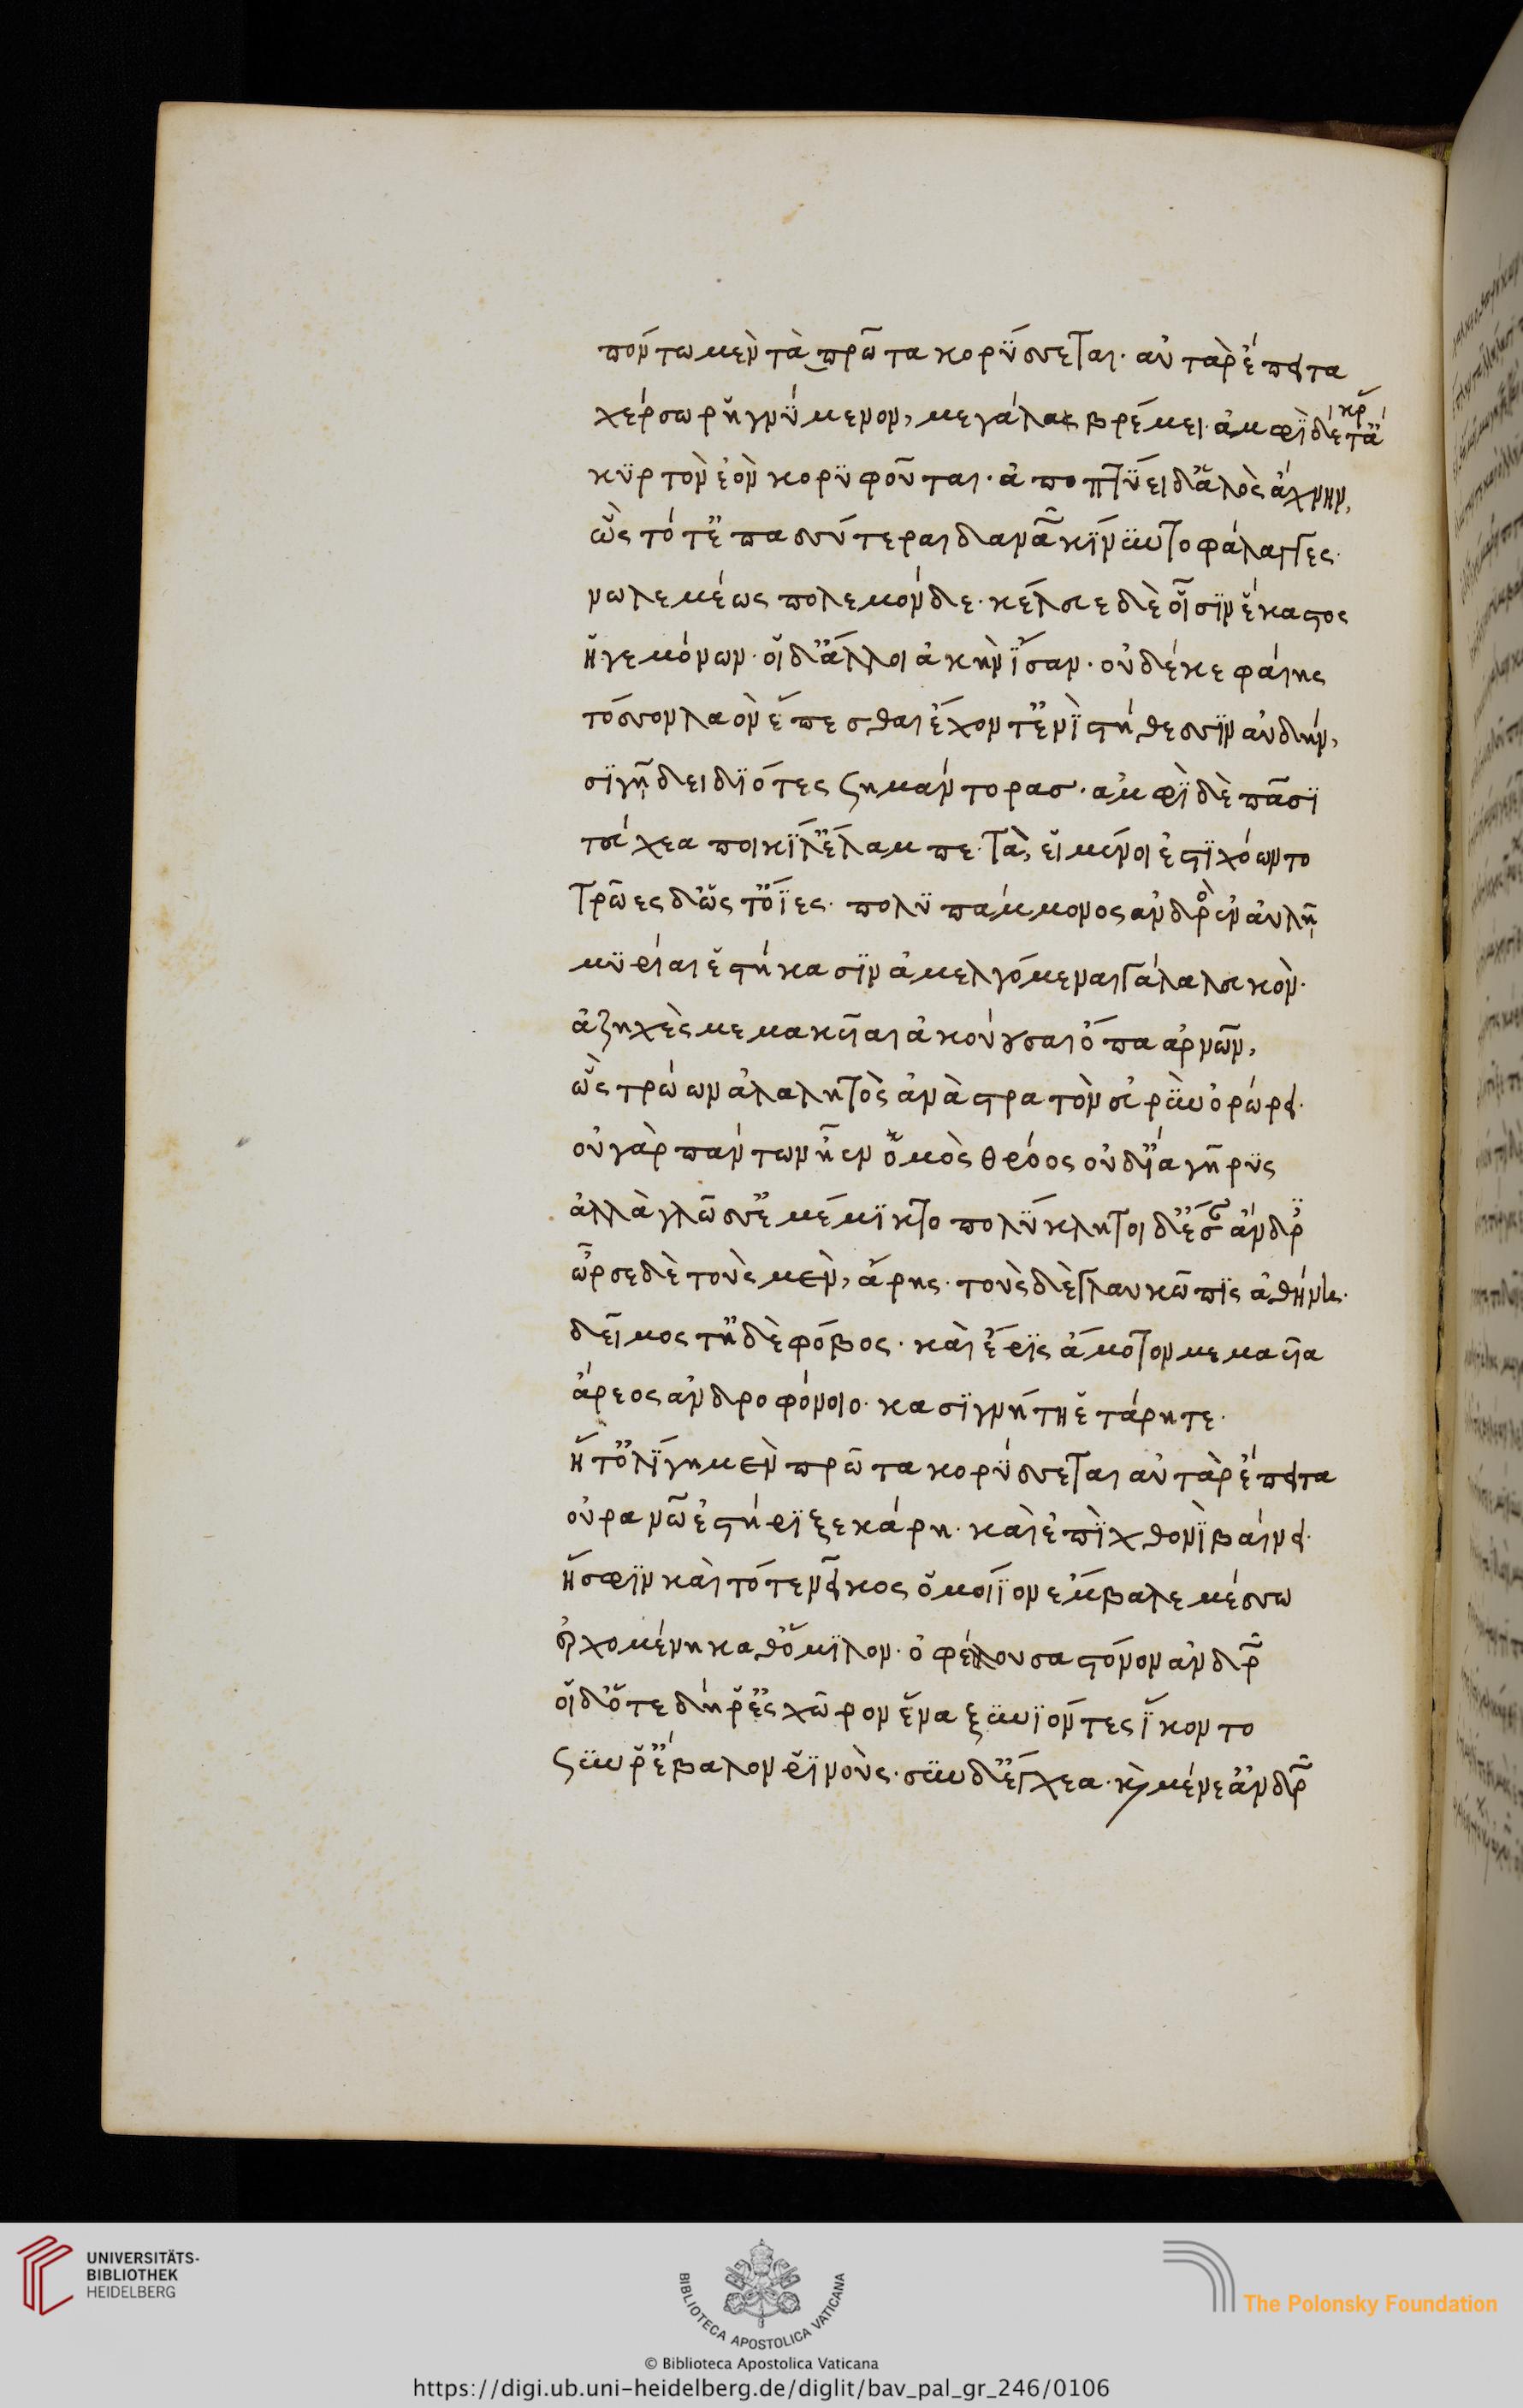 πόντω μὲν τὰ πρῶτα κορύσσεται· αὐτὰρ ἔπειτα
χέρσω ῥηγνύμενον, μεγάλα βρέμει· ἀμφὶ δέ τ' ἄκρ
κυρτὸν ἐὸν κορυφοῦται· ἀποπτύει δ' ἁλὸς ἄχνην,
ὣς τότ' ἐπασσύτεραι δαναῶν κίνυντο φάλαγγες·
νωλεμέως πολεμόνδε· κέλσε δὲ οἷσιν ἕκαστος
ἡγεμόνων· οἱ δ' ἄλλοι ἀκὴν ἴσαν· οὐδέ κε φαίης
τόσσον λαὸν ἕπεσθαι ἔχοντ' ἐνὶ στήθεσσιν αὐδήν,
σιγῇ δειδιότες σημάντορας· ἀμφὶ δὲ πᾶσι
τεύχεα ποικίλ' ἔλαμπε· τὰ, εἱμένοι ἐστιχόωντο
Τρῶες δ' ὥς τ' ὄϊες· πολυπάμμονος ἀνδρὸς ἐν αὐλῇ
μυρίαι ἑστήκασιν ἀμελγόμεναι γάλα λευκόν·
ἀζηχὲς μεμακυῖαι ἀκούουσαι ὄπα ἀρνῶν,
ὣς τρώων ἀλαλητὸς ἀνὰ στρατὸν εὐρὺν ὀρώρει·
οὐ γὰρ πάντων ἦεν ὁμὸς θρόος οὐδ' ἴα γῆρυς
ἀλλὰ γλῶσσ' ἐμέμικτο πολύκλητοι δ' ἔσαν ἄνδρ
ὦρσε δὲ τοὺς μὲν, ἄρης· τοὺς δὲ γλαυκῶπις ἀθήνη·
δεῖμός τ' ἠδὲ φόβος· καὶ ἔρις ἄμοτον μεμαυῖα
ἄρεος ἀνδροφόνοιο· κασιγνήτη ἑτάρητε·
ἥτ' ὀλίγη μὲν πρῶτα κορύσσεται αὐτὰρ ἔπειτα
οὐρανῶ ἐστήριξε κάρη· καὶ ἐπὶ χθονὶ βαίνει·
ἥ σφιν καὶ τότε νεῖκος ὁμοίϊον ἔμβαλε μέσσω
ἐρχομένη καθ' ὅμιλον· ὀφέλλουσα στόνον ἀνδρῶν
οἱ δ' ὅτε δή ῥ' ἐς χῶρον ἕνα ξυνιόντες ἵκοντο
σύν ῥ' ἔβαλον ῥινούς· σὺν δ' ἔγχεα· καὶ μένε' ἀνδρῶν
UNIVERSITÄTS-
BIBLIOTHEK
HEIDELBERG
BIBLIOTECA APOSTOLICA VATICANA
The Polonsky Foundation
© Biblioteca Apostolica Vaticana
https://digi.ub.uni-heidelberg.de/diglit/bav_pal_gr_246/0106